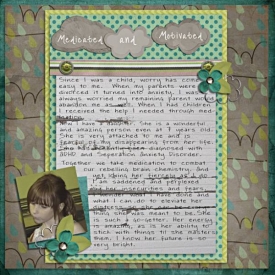 Medicated and Motivated
Since I was a child, worry has come
easy to me. When my parents were
divorced it turned into anxiety. I was
always worried my remaining parent would
abandon me as well. When I had children
I received the help I needed through med
ication.
Now I have a daughter. She is a wonderful
and amazing person even at 7 years old.
She is very attached to me and is
fearful of my disappearing from her life.
She has recently been diagnosed with
ADHD and Seperation Anxiety Disorder.
Together we take medication to combat
our rebelling brain chemistry. And
yet, during her
I am saddened and perplexed
her insecurities and fears.
I wonder what I have done and
what I can do to elevate her
thing she was meant to be. She
is such a go-getter. Her energy
is amazing, as is her ability to
stick with things to she masters
them. I know her future is so
very bright.